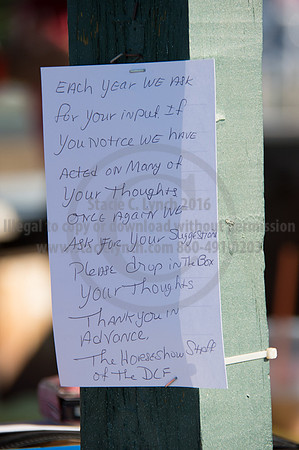 EACH YEAR WE ASK
for your input If
you Notice WE HAVE
Acted on Many of
your Thoughts
ONCE AGAIN WE
ASK FOR your Suggestion
Please drop in The Box
your Thoughts
THANK you in
Advance.
The Horseshow Staff
of the DCF.
Stacie C. Lynch 2016
Illegal to copy or download without permission